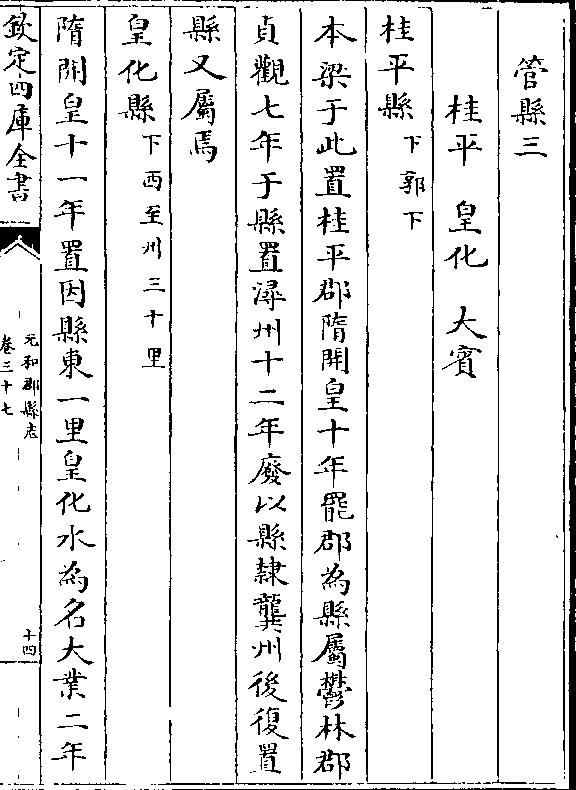 管縣三
桂平 皇化 大賓
桂平縣下郭下
本梁于此置桂平郡隋開皇十年罷郡為縣屬鬱林郡
貞觀七年于縣置潯州十二年廢以縣隸龔州後復置
縣又屬焉
皇化縣下西至州三十里
隋開皇十一年置因縣東一里皇化水為名大業二年
欽定四庫全書
元和郡縣志
卷三十七
十四